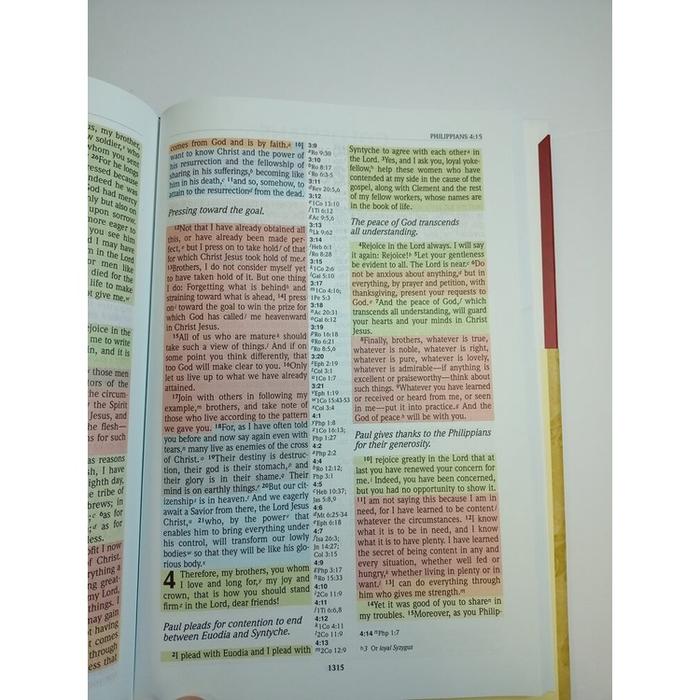 us, my brother,
w soldier, who
whom you sent
26For he longs
ressed because
ndeed he was
God had mercy
nly but also on
upon sorrow.
more eager to
you see him
d I may have
m in the Lord
or men like
died for the
life to make
ot give me.
ejoice in the
me to write
n, and it is
those men
tors of the
he circum-
the Spirit
Jesus, and
he flesh—
s for such
as reasons
sh, I have
ighth day,
e tribe of
brews; in
as for
as for
less.
ofit I now
f Christ.
rything a
ng great-
my Lord,
things. I
may gain
t having
t comes
through
ess that
PHILIPPIANS 4:15
comes from God and is by faith. 10I
want to know Christ and the power of
his resurrection and the fellowship of
sharing in his sufferings, becoming like
him in his death, 11and so, somehow, to
attain to the resurrection from the dead.
Pressing toward the goal.
12Not that I have already obtained all
this, or have already been made per-
fect, but I press on to take hold of that
for which Christ Jesus took hold of me.
13Brothers, I do not consider myself yet
to have taken hold of it. But one thing
I do: Forgetting what is behind and
straining toward what is ahead, 14I press
on toward the goal to win the prize for
which God has called me heavenward
in Christ Jesus.
15All of us who are mature should
take such a view of things. And if on
some point you think differently, that
too God will make clear to you. 16Only
let us live up to what we have already
attained.
17Join with others in following my
example, brothers, and take note of
those who live according to the pattern
we gave you. 18For, as I have often told
you before and now say again even with
tears, many live as enemies of the cross
of Christ. 19Their destiny is destruc-
tion, their god is their stomach, and
their glory is in their shame. Their
mind is on earthly things. 20But our cit-
izenship is in heaven. And we eagerly
await a Savior from there, the Lord Jesus
Christ, 21who, by the power that
enables him to bring everything under
his control, will transform our lowly
bodies so that they will be like his glo-
rious body.
4 Therefore, my brothers, you whom
I love and long for, my joy and
crown, that is how you should stand
firm in the Lord, dear friends!
Paul pleads for contention to end
between Euodia and Syntyche.
2I plead with Euodia and I plead with
3:9
Ro 9:30
3:10
Ro 8:17
Ro 6:3-5
3:11
Rev 20:5,6
3:12
1Co 13:10
1Ti 6:12
Ac 9:5,6
3:13
Lk 9:62
3:14
Heb 6:1
Ro 8:28
3:15
1Co 2:6
Gal 5:10
3:17
1Co 4:16;
1Pe 5:3
3:18
Ac 20:31
Gal 6:12
3:19
Ro 16:18
Ro 6:21
Ro 8:5,6
3:20
Eph 2:19
Col 3:1
1Co 1:7
3:21
Eph 1:19
1Co 15:43-53
Col 3:4
4:1
Php 1:8
1Co 16:13;
Php 1:27
4:2
Php 2:2
4:4
Ro 12:12;
Php 3:1
4:5
Heb 10:37;
Jas 5:8,9
4:6
Mt 6:25-34
Eph 6:18
4:7
Isa 26:3;
Jn 14:27;
Col 3:15
4:9
Php 3:17
Ro 15:33
4:10
2Co 11:9
4:11
1Ti 6:6,8
4:12
1Co 4:11
2Co 11:9
4:13
2Co 12:9
Syntyche to agree with each other in
the Lord. 3Yes, and I ask you, loyal yoke-
fellow, help these women who have
contended at my side in the cause of the
gospel, along with Clement and the rest
of my fellow workers, whose names are
in the book of life.
The peace of God transcends
all understanding.
4Rejoice in the Lord always. I will say
it again: Rejoice! 5Let your gentleness
be evident to all. The Lord is near. 6Do
not be anxious about anything, but in
everything, by prayer and petition, with
thanksgiving, present your requests to
God. 7And the peace of God, which
transcends all understanding, will guard
your hearts and your minds in Christ
Jesus.
8Finally, brothers, whatever is true,
whatever is noble, whatever is right,
whatever is pure, whatever is lovely,
whatever is admirable—if anything is
excellent or praiseworthy—think about
such things. 9Whatever you have learned
or received or heard from me, or seen
in me—put it into practice. And the
God of peace will be with you.
Paul gives thanks to the Philippians
for their generosity.
10I rejoice greatly in the Lord that at
last you have renewed your concern for
me. Indeed, you have been concerned,
but you had no opportunity to show it.
11I am not saying this because I am in
need, for I have learned to be content
whatever the circumstances. 12I know
what it is to be in need, and I know
what it is to have plenty. I have learned
the secret of being content in any and
every situation, whether well fed or
hungry, whether living in plenty or in
want. 13I can do everything through
him who gives me strength.
14Yet it was good of you to share in
my troubles. 15Moreover, as you Philip-
4:14 Php 1:7
3 Or loyal Syzygus
1315